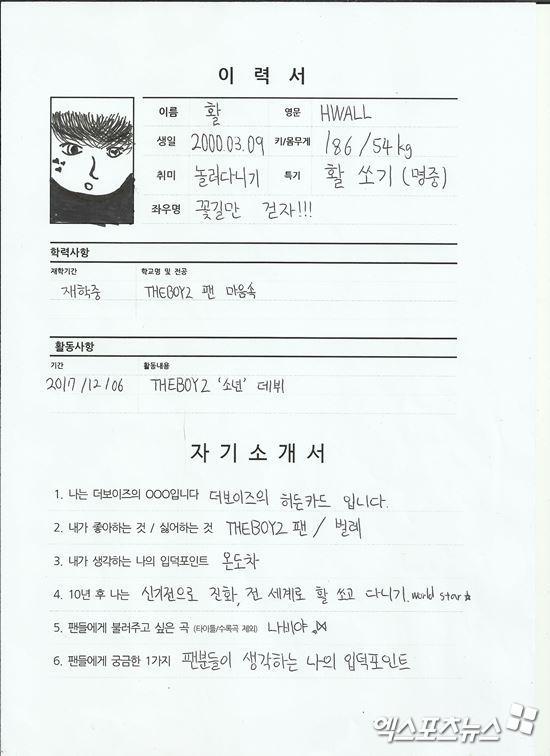 이 력 서
이름 활 영문 HWALL
생일 2000.03.09 키/몸무게 186/54kg
취미 놀러다니기 특기 활 쏘기 (명중)
좌우명 꽃길만 걷자!!!
학력사항
재학기간 학교명 및 전공
재학중 THEBOYZ 팬 마음속
활동사항
기간 활동내용
2017/12/06 THEBOYZ '소년' 데뷔
자 기 소 개 서
1. 나는 더보이즈의 OOO입니다 더보이즈의 히든카드 입니다.
2. 내가 좋아하는 것 / 싫어하는 것 THEBOYZ 팬 / 벌레
3. 내가 생각하는 나의 입덕포인트 온도차
4. 10년 후 나는 신기전으로 진화, 전 세계로 활 쏘고 다니기. world star☆
5. 팬들에게 불러주고 싶은 곡 (타이틀/수록곡 제외) 나비야
6. 팬들에게 궁금한 1가지 팬분들이 생각하는 나의 입덕포인트
엑스포츠뉴스